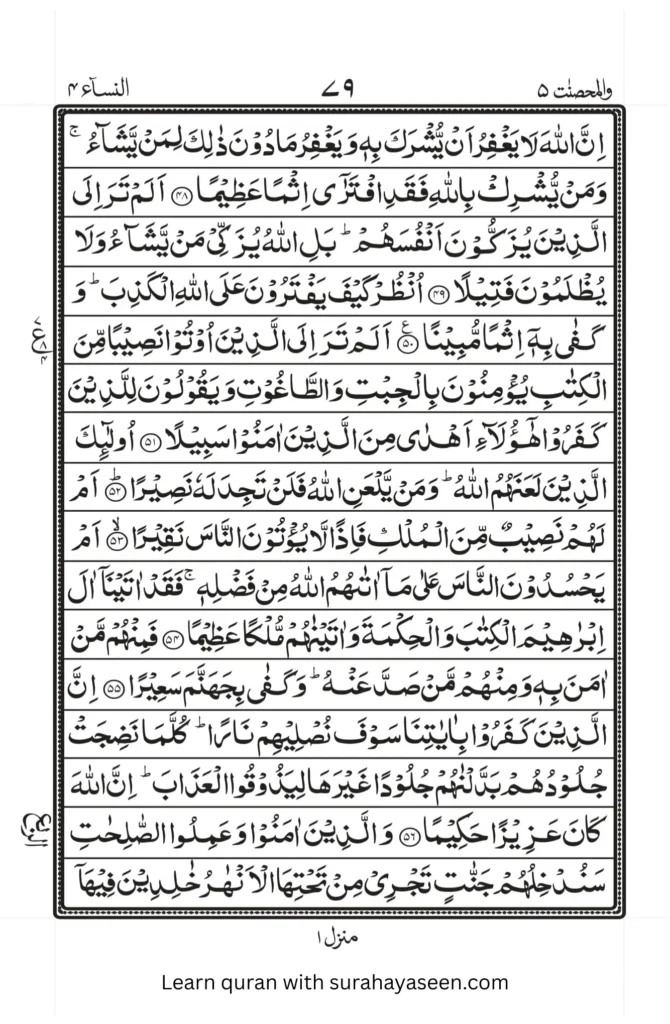 والمحصنٰت ۵ ۷۹ النسآء ۴
اِنَّ اللّٰهَ لَا يَغْفِرُ اَنْ يُّشْرَكَ بِهٖ وَيَغْفِرُ مَا دُوْنَ ذٰلِكَ لِمَنْ يَّشَآءُ ۚ
وَمَنْ يُّشْرِكْ بِاللّٰهِ فَقَدِ افْتَرٰٓى اِثْمًا عَظِيْمًا ۝۴۸ اَلَمْ تَرَ اِلَى
الَّذِيْنَ يُزَكُّوْنَ اَنْفُسَهُمْ ؕ بَلِ اللّٰهُ يُزَكِّىْ مَنْ يَّشَآءُ وَلَا
يُظْلَمُوْنَ فَتِيْلًا ۝۴۹ اُنْظُرْ كَيْفَ يَفْتَرُوْنَ عَلَى اللّٰهِ الْكَذِبَ ؕ وَ
كَفٰى بِهٖۤ اِثْمًا مُّبِيْنًا ۝۵۰ ع اَلَمْ تَرَ اِلَى الَّذِيْنَ اُوْتُوْا نَصِيْبًا مِّنَ
الْكِتٰبِ يُؤْمِنُوْنَ بِالْجِبْتِ وَالطَّاغُوْتِ وَيَقُوْلُوْنَ لِلَّذِيْنَ
كَفَرُوْا هٰٓؤُلَآءِ اَهْدٰى مِنَ الَّذِيْنَ اٰمَنُوْا سَبِيْلًا ۝۵۱ اُولٰٓئِكَ
الَّذِيْنَ لَعَنَهُمُ اللّٰهُ ؕ وَمَنْ يَّلْعَنِ اللّٰهُ فَلَنْ تَجِدَ لَهٗ نَصِيْرًا ؕ۝۵۲ اَمْ
لَهُمْ نَصِيْبٌ مِّنَ الْمُلْكِ فَاِذًا لَّا يُؤْتُوْنَ النَّاسَ نَقِيْرًا ۙ۝۵۳ اَمْ
يَحْسُدُوْنَ النَّاسَ عَلٰى مَاۤ اٰتٰىهُمُ اللّٰهُ مِنْ فَضْلِهٖ ۚ فَقَدْ اٰتَيْنَاۤ اٰلَ
اِبْرٰهِيْمَ الْكِتٰبَ وَالْحِكْمَةَ وَاٰتَيْنٰهُمْ مُّلْكًا عَظِيْمًا ۝۵۴ فَمِنْهُمْ مَّنْ
اٰمَنَ بِهٖ وَمِنْهُمْ مَّنْ صَدَّ عَنْهُ ؕ وَكَفٰى بِجَهَنَّمَ سَعِيْرًا ۝۵۵ اِنَّ
الَّذِيْنَ كَفَرُوْا بِاٰيٰتِنَا سَوْفَ نُصْلِيْهِمْ نَارًا ؕ كُلَّمَا نَضِجَتْ
جُلُوْدُهُمْ بَدَّلْنٰهُمْ جُلُوْدًا غَيْرَهَا لِيَذُوْقُوا الْعَذَابَ ؕ اِنَّ اللّٰهَ
كَانَ عَزِيْزًا حَكِيْمًا ۝۵۶ وَالَّذِيْنَ اٰمَنُوْا وَعَمِلُوا الصّٰلِحٰتِ
سَنُدْخِلُهُمْ جَنّٰتٍ تَجْرِىْ مِنْ تَحْتِهَا الْاَنْهٰرُ خٰلِدِيْنَ فِيْهَاۤ
منزل ۱
Learn quran with surahayaseen.com